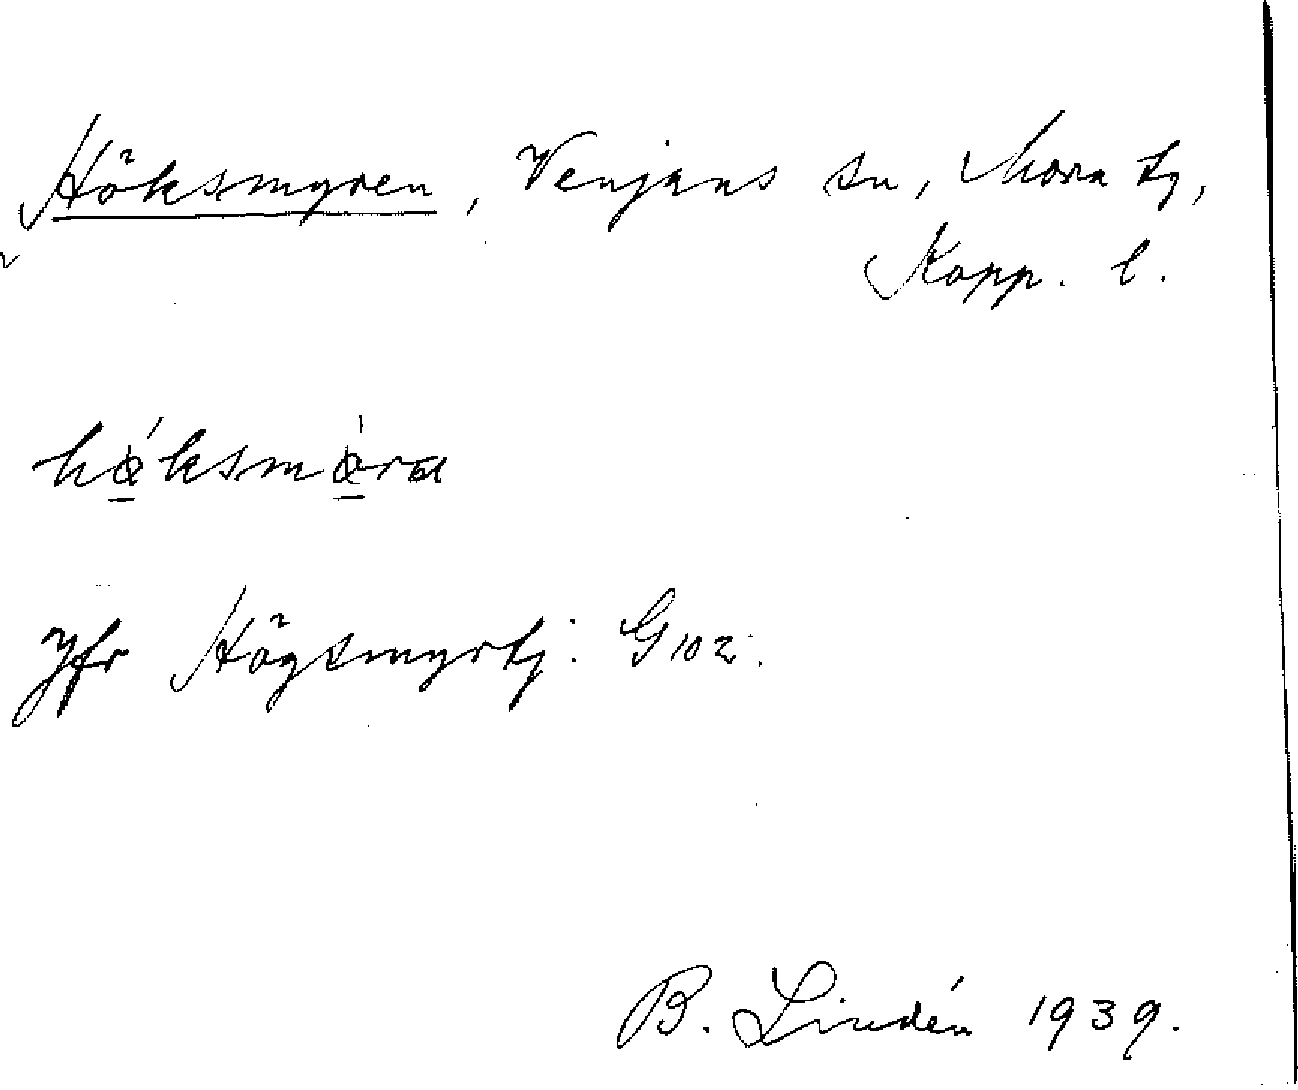 Höksmyren, Venjans sn, Mora tg,
Kopp. l.
hǿ̱ksmǿ̱ra
Jfr Högsmyrtj: G102.
B. Lindén 1939.